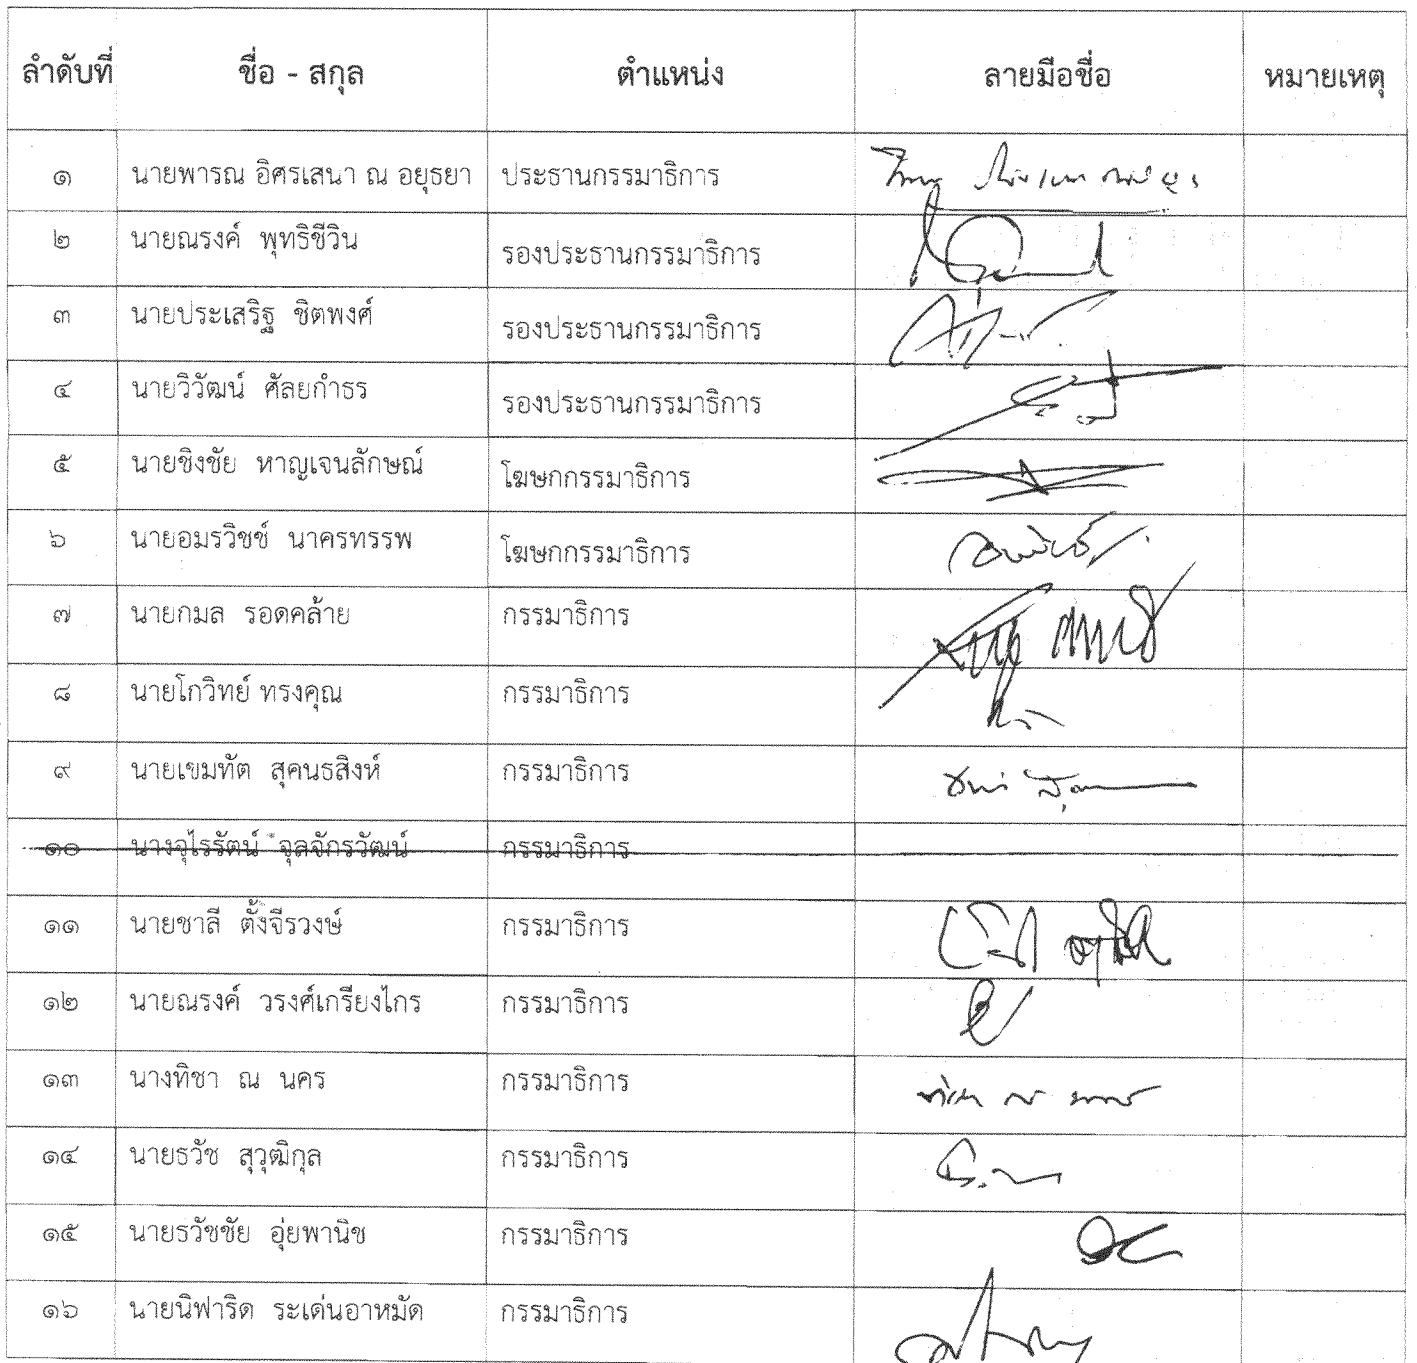 ลำดับที่ ชื่อ - สกุล ตำแหน่ง ลายมือชื่อ หมายเหตุ
๑ นายพารณ อิศรเสนา ณ อยุธยา ประธานกรรมาธิการ
๒ นายณรงค์ พุทธิชีวิน รองประธานกรรมาธิการ
๓ นายประเสริฐ ชิตพงศ์ รองประธานกรรมาธิการ
๔ นายวิวัฒน์ ศัลยกำธร รองประธานกรรมาธิการ
๕ นายชิงชัย หาญเจนลักษณ์ โฆษกกรรมาธิการ
๖ นายอมรวิชช์ นาครทรรพ โฆษกกรรมาธิการ
๗ นายกมล รอดคล้าย กรรมาธิการ
๘ นายโกวิทย์ ทรงคุณ กรรมาธิการ
๙ นายเขมทัต สุคนธสิงห์ กรรมาธิการ
๑๐ นางจุไรรัตน์ จุลจักรวัฒน์ กรรมาธิการ
๑๑ นายชาลี ตั้งจีรวงษ์ กรรมาธิการ
๑๒ นายณรงค์ วรงศ์เกรียงไกร กรรมาธิการ
๑๓ นางทิชา ณ นคร กรรมาธิการ
๑๔ นายธวัช สุวุฒิกุล กรรมาธิการ
๑๕ นายธวัชชัย อุ่ยพานิช กรรมาธิการ
๑๖ นายนิฟาริด ระเด่นอาหมัด กรรมาธิการ